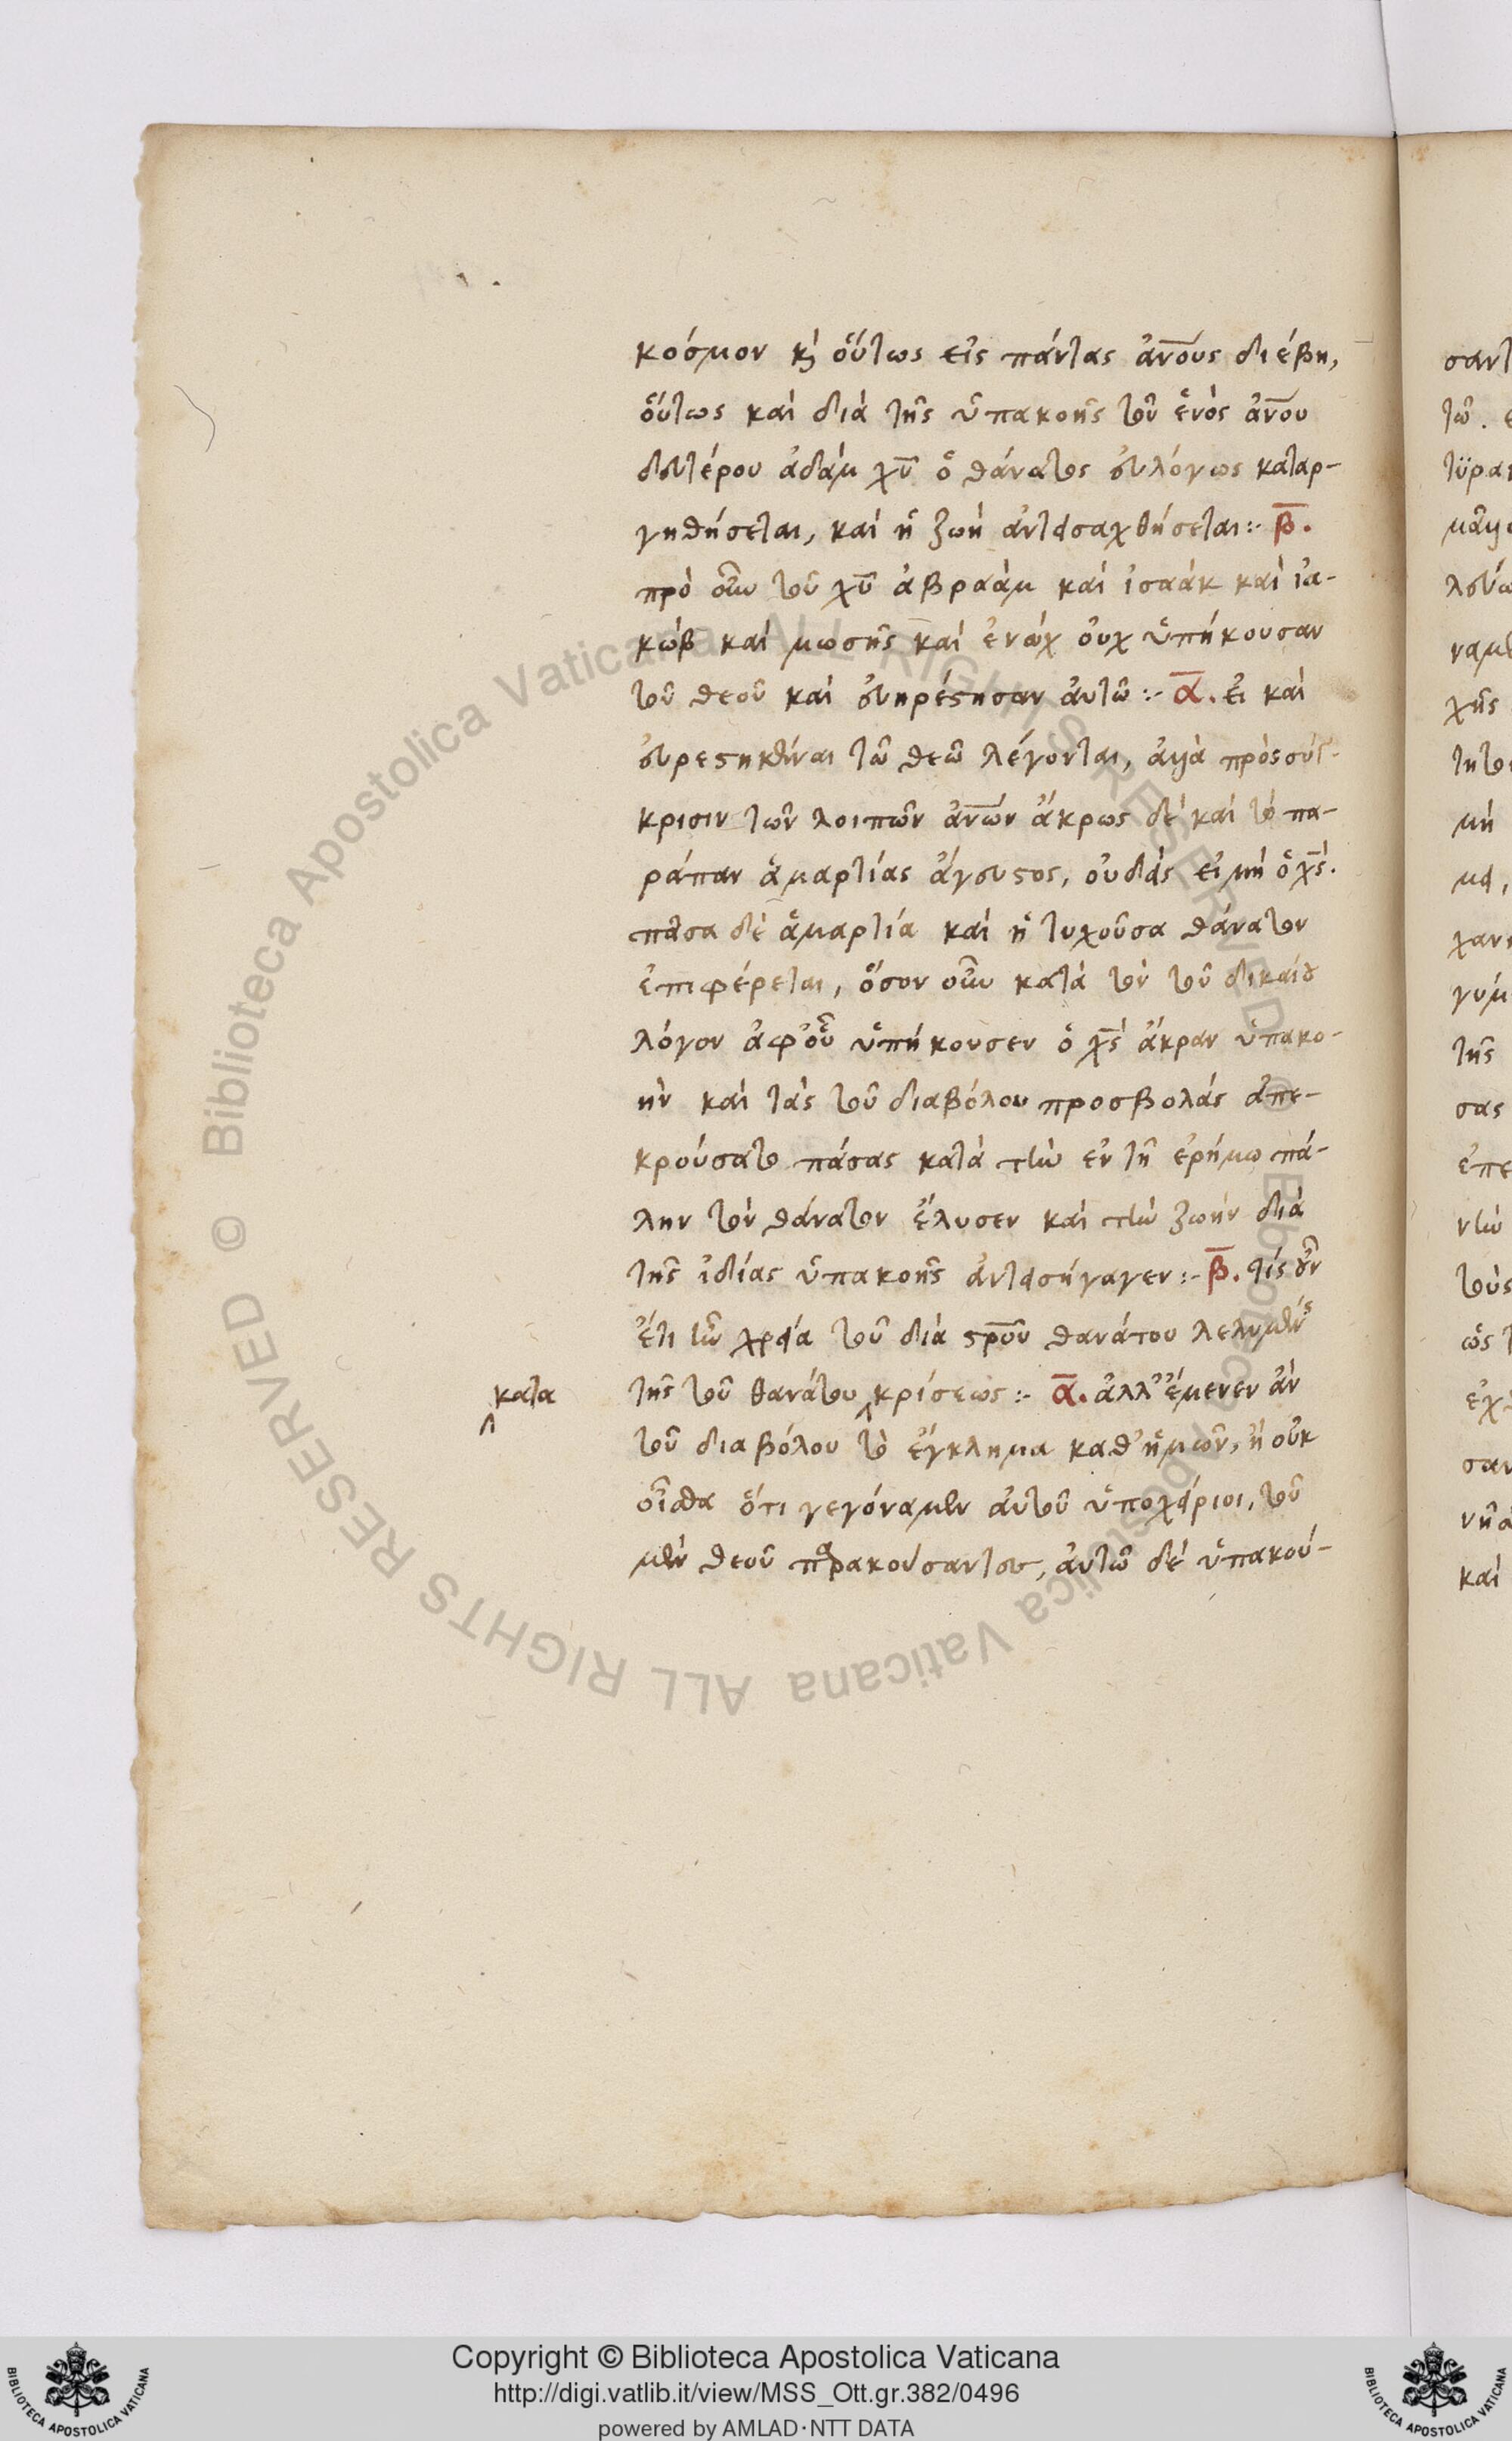 κόσμον κὶ οὕτως εἰς πάντας ἀνους διέβη,
οὕτως καὶ διὰ τῆς ὑπακοῆς τοῦ ἑνὸς ἀνου
δευτέρου ἀδὰμ χυ ὁ θάνατος εὐλόγως καταρ-
γηθήσεται, καὶ ἡ ζωὴ ἀντεισαχθήσεται :- β.
πρὸ οὖν τοῦ χυ ἀβραὰμ καὶ ἰσαὰκ καὶ ἰα-
κὼβ καὶ μωσῆς καὶ ἐνὼχ οὐχ ὑπήκουσαν
τοῦ θεοῦ καὶ εὐηρέστησαν αὐτῶ :- α. εἰ καὶ
εὐρεστηκέναι τῶ θεῶ λέγονται, ἀλλὰ πρὸς σύγ-
κρισιν τῶν λοιπῶν ἀνων ἄκρως δὲ καὶ τὸ πα-
ράπαν ἁμαρτίας ἄγευστος, οὐδεὶς εἰ μὴ ὁ χς.
πᾶσα δὲ ἁμαρτία καὶ ἡ τυχοῦσα θάνατον
ἐπιφέρεται, ὅσον οὖν κατὰ τὸν τοῦ δικαίου
λόγον ἀφ' οὗ ὑπήκουσεν ὁ χς ἄκραν ὑπακο-
ὴν καὶ τὰς τοῦ διαβόλου προσβολὰς ἀπε-
κρούσατο πάσας κατὰ τὴν ἐν τῇ ἐρήμω πά-
λην τὸν θάνατον ἔλυσεν καὶ τὴν ζωὴν διὰ
τῆς ἰδίας ὑπακοῆς ἀντεισήγαγεν :- β. τίς οὖν
ἔτι ἦν χρεία τοῦ διὰ στρου θανάτου λελυμένης
κατα
τῆς τοῦ θανάτου κρίσεως :- α. ἀλλ' ἔμενεν ἂν
τοῦ διαβόλου τὸ ἔγκλημα καθ' ἡμῶν, ἢ οὐκ
οἶσθα ὅτι γεγόναμεν αὐτοῦ ὑποχείριοι, τοῦ
μὲν θεοῦ παρακούσαντες, αὐτῶ δὲ ὑπακού-
Copyright © Biblioteca Apostolica Vaticana
http://digi.vatlib.it/view/MSS_Ott.gr.382/0496
powered by AMLAD·NTT DATA